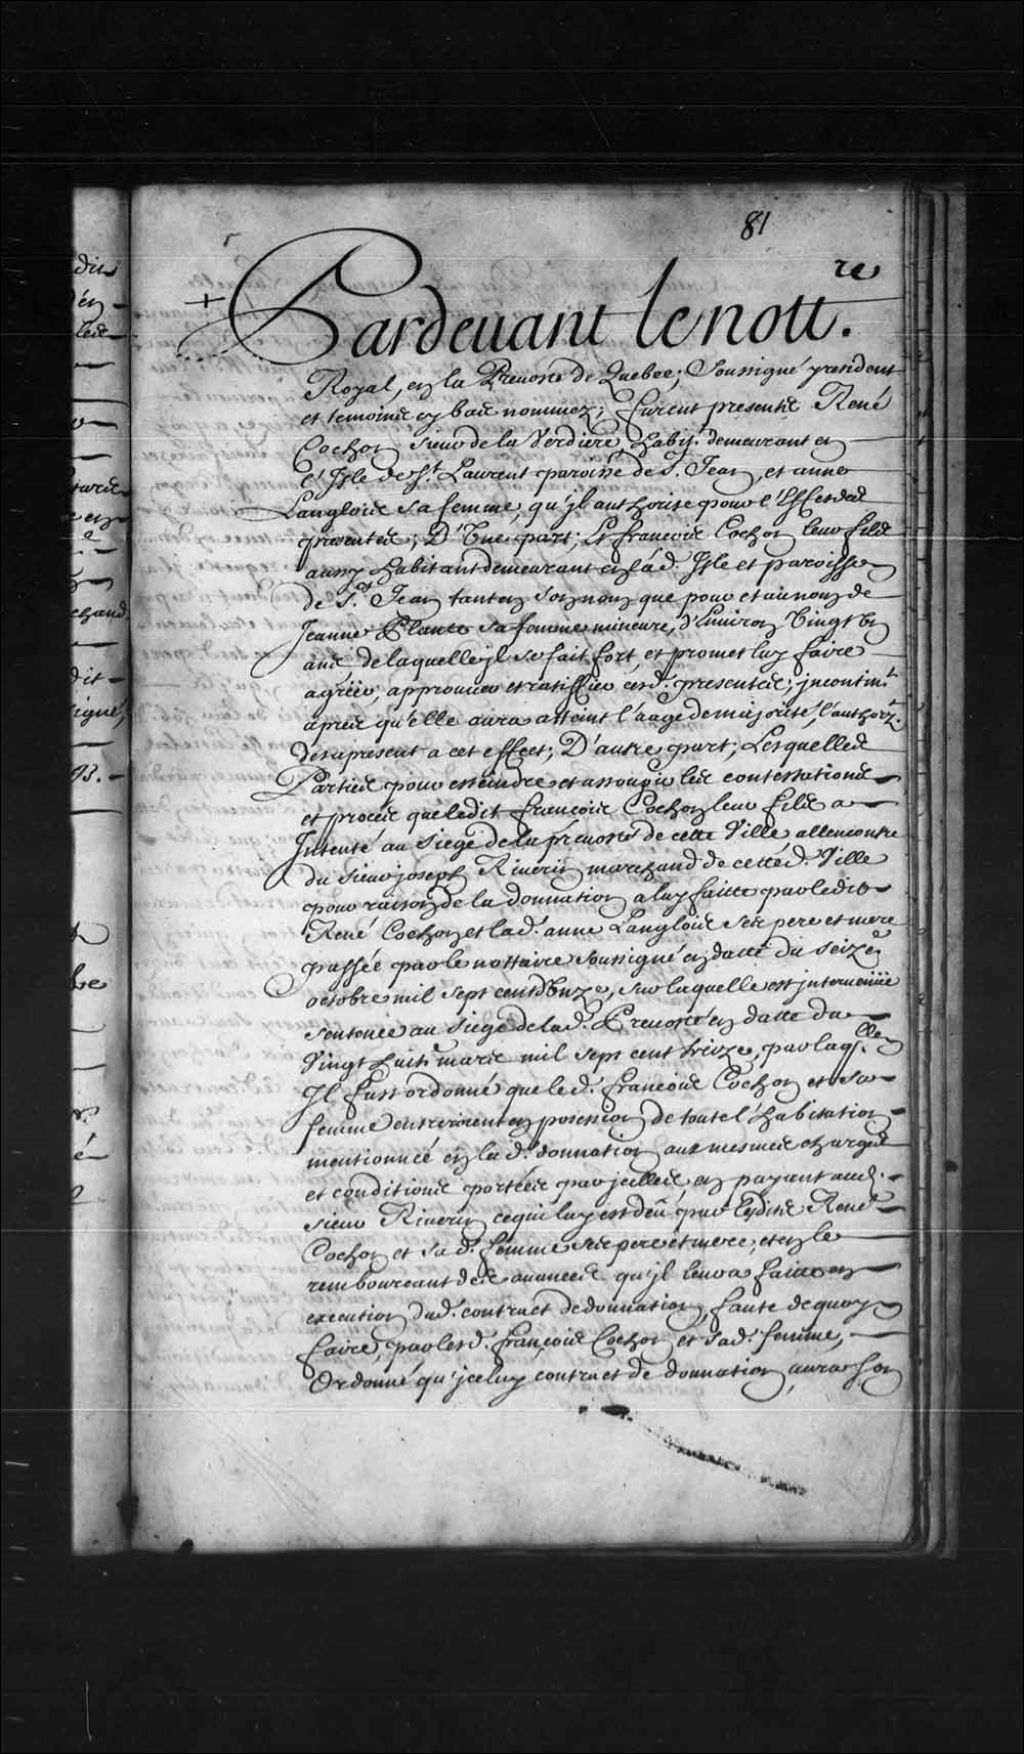 81
Pardevant le nott.re
Royal, en la Prevosté de Quebec; Soussigné y residant
et temoins cy bas nommez; furent presents René
Cochon sieur de la Verdiere, habit. demeurant en
C'Isle de St. Laurent paroisse de St. Jean, et anne
Langlois sa femme, qu'jl authorise pour l'Effet des
presentes; D'Une part; Et francois Cochon leur fils
aussy habitant demeurant en lad. Isle et paroisse
de St. Jean tant en son nom que pour et au nom de
Jeanne Plante sa femme mineure, d'Environ Vingt Un
ans de laquelle jl se fait fort, et promet luy faire
agréer, approuver et ratiffier cesd. presentes; jncontint
apres qu'elle aura atteint l'aage de majorité, l'authoris.t
des apresent a cet effect; D'autre part; Lesquelles
Parties pour esteindre et assoupir les contestations
et proces que ledit francois Cochon leur fils a
Intenté au siege de la prevosté de cette Ville allencontre
du sieur joseph Riverin marchand de cette d. Ville
pour raison de la donnation a luy faitte par ledit
René Cochon et lad. anne Langlois ses pere et mere
passée par le nottaire soussigné en datte du seize
octobre mil sept cent Unze, sur laquelle est jntervenüe
sentence au siege de lad. Prevosté en datte du
Vingt huit.e mars mil sept cent treize, par laq.lle
Il fust ordonné que led. francois Cochon et sa
femme entreroient en possession de toute l'habitation
mentionnée en lad. donnation aux mesmes charges
et conditions portées par jcelle en payant aud.
sieur Riverin ce qui luy est deû par lesdits René
Cochon et sad. femme ses pere et mere, et en le
rembourcant des avances qu'jl leur a faittes en
execution dud. contract de donnation, faute de quoy
faire, par lesd. francois Cochon et sad. femme,
Ordonné qu'jceluy contract de donnation aura son